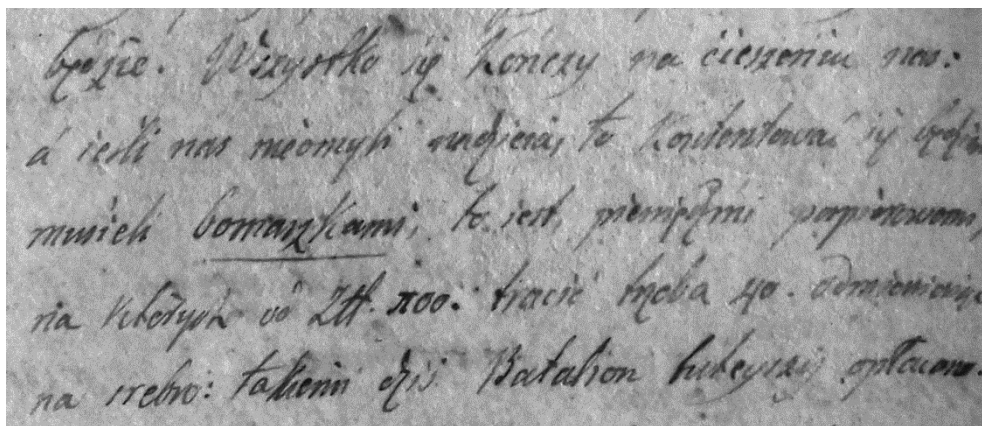 będzie. Wszystko się kończy na cieszeniu nas:
á ieśli nas nieomyli nadzieia, to kontentować się będziem
musieli bomaszkami, to iest, pieniędzmi papierowemi,
na których od Ztł. 100. tracić trzeba 40. odmieniaiąc
na srebro: takiemi dziś Batalion tuteyszy opłacono.